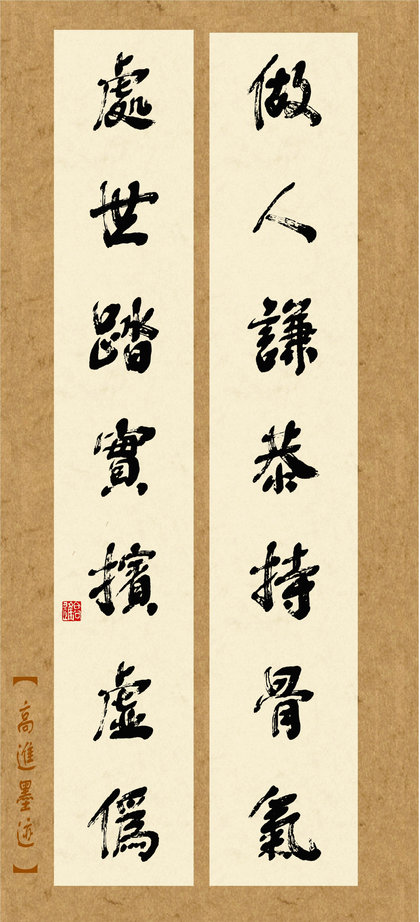 做人謙恭持骨氣
處世踏實擯虛偽
高進
【高進墨迹】